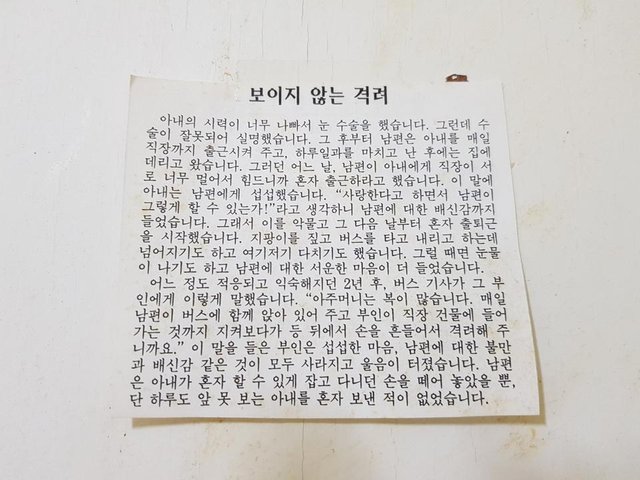 보이지 않는 격려
아내의 시력이 너무 나빠서 눈 수술을 했습니다. 그런데 수
술이 잘못되어 실명했습니다. 그 후부터 남편은 아내를 매일
직장까지 출근시켜 주고, 하루일과를 마치고 난 후에는 집에
데리고 왔습니다. 그러던 어느 날, 남편이 아내에게 직장이 서
로 너무 멀어서 힘드니까 혼자 출근하라고 했습니다. 이 말에
아내는 남편에게 섭섭했습니다. “사랑한다고 하면서 남편이
그렇게 할 수 있는가!”라고 생각하니 남편에 대한 배신감까지
들었습니다. 그래서 이를 악물고 그 다음 날부터 혼자 출퇴근
을 시작했습니다. 지팡이를 짚고 버스를 타고 내리고 하는데
넘어지기도 하고 여기저기 다치기도 했습니다. 그럴 때면 눈물
이 나기도 하고 남편에 대한 서운한 마음이 더 들었습니다.
어느 정도 적응되고 익숙해지던 2년 후, 버스 기사가 그 부
인에게 이렇게 말했습니다. “아주머니는 복이 많습니다. 매일
남편이 버스에 함께 앉아 있어 주고 부인이 직장 건물에 들어
가는 것까지 지켜보다가 등 뒤에서 손을 흔들어서 격려해 주
니까요.” 이 말을 들은 부인은 섭섭한 마음, 남편에 대한 불만
과 배신감 같은 것이 모두 사라지고 울음이 터졌습니다. 남편
은 아내가 혼자 할 수 있게 잡고 다니던 손을 떼어 놓았을 뿐,
단 하루도 앞 못 보는 아내를 혼자 보낸 적이 없었습니다.